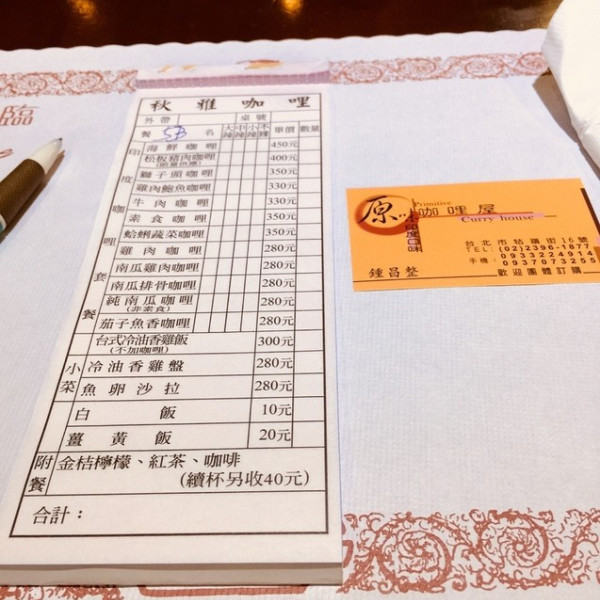 臨
秋雅咖哩
外帶 桌號
餐 5B 名 大辣 中辣 小辣 不辣 單價 數量
印度咖哩套餐
海鮮咖哩 450元
松板豬肉咖哩 400元
獅子頭咖哩 350元
雞肉鮑魚咖哩 330元
牛肉咖哩 330元
素食咖哩 350元
蛤蜊蔬菜咖哩 350元
雞肉咖哩 280元
南瓜雞肉咖哩 280元
南瓜排骨咖哩 280元
純南瓜咖哩 280元
(非素食)
茄子魚香咖哩 280元
台式冷油香雞飯 300元
(不加咖哩)
小菜
冷油香雞盤 280元
魚卵沙拉 280元
白飯 10元
薑黃飯 20元
附餐 金桔檸檬、紅茶、咖啡
(續杯另收40元)
合計：
原 Primitive
咖哩屋
Curry house
印度口味
台北市牯嶺街16號
TEL：(02)2396-1877
手機：0933224914
0937073255
鍾昌整 歡迎團體訂購